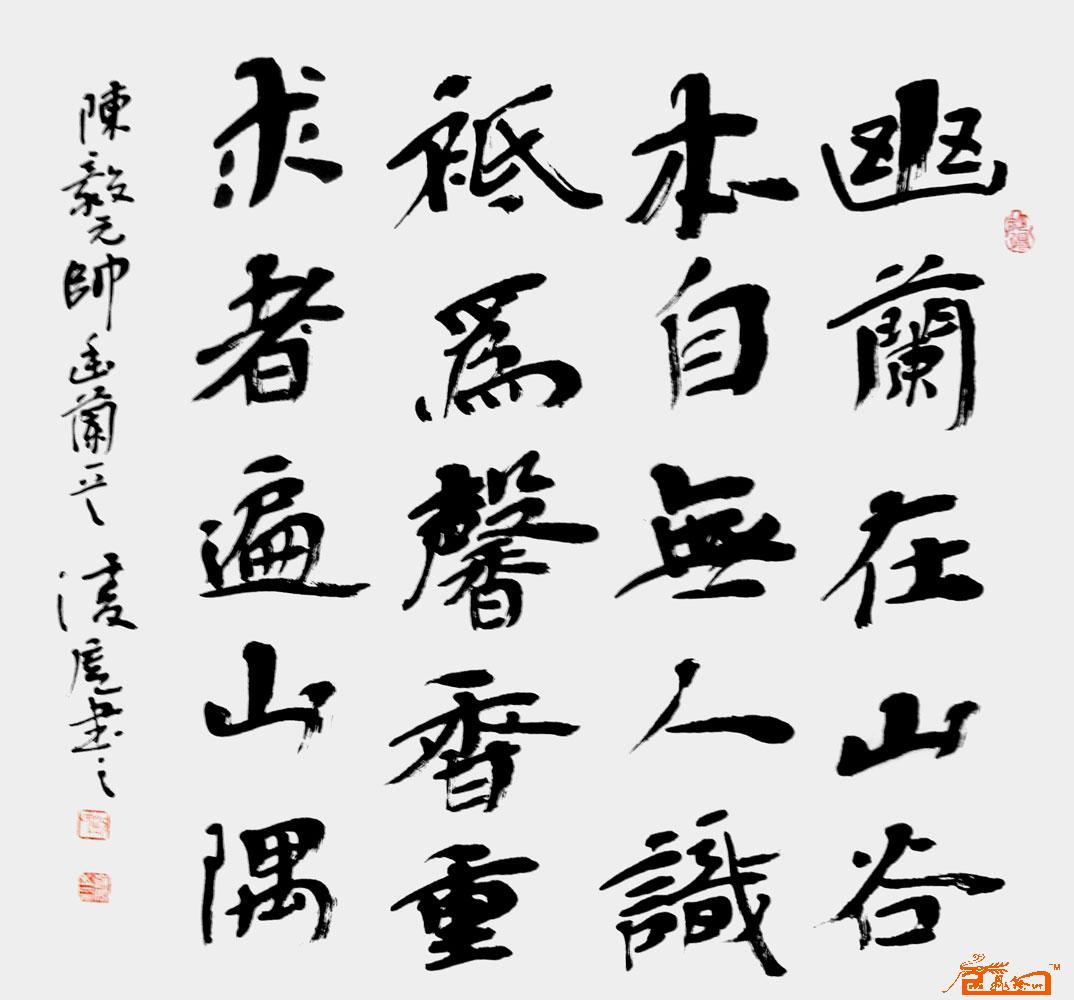 幽蘭在山谷
本自無人識
祗為馨香重
求者遍山隅
陳毅元帥幽蘭一首 凌虛書之